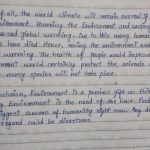 of all, the world climate will remain normal if
environment. Harming the Environment and saving
and global warming. Due to this many humans
have died. Hence, saving the environment would
warming. The health of people would improve
ment would certainly protect the animals
many species will not take place.
clusion, Environment is a precious gift on this
Environment is the need of the hour.
biggest concern of humanity right now. Any
regard could be disastrous.